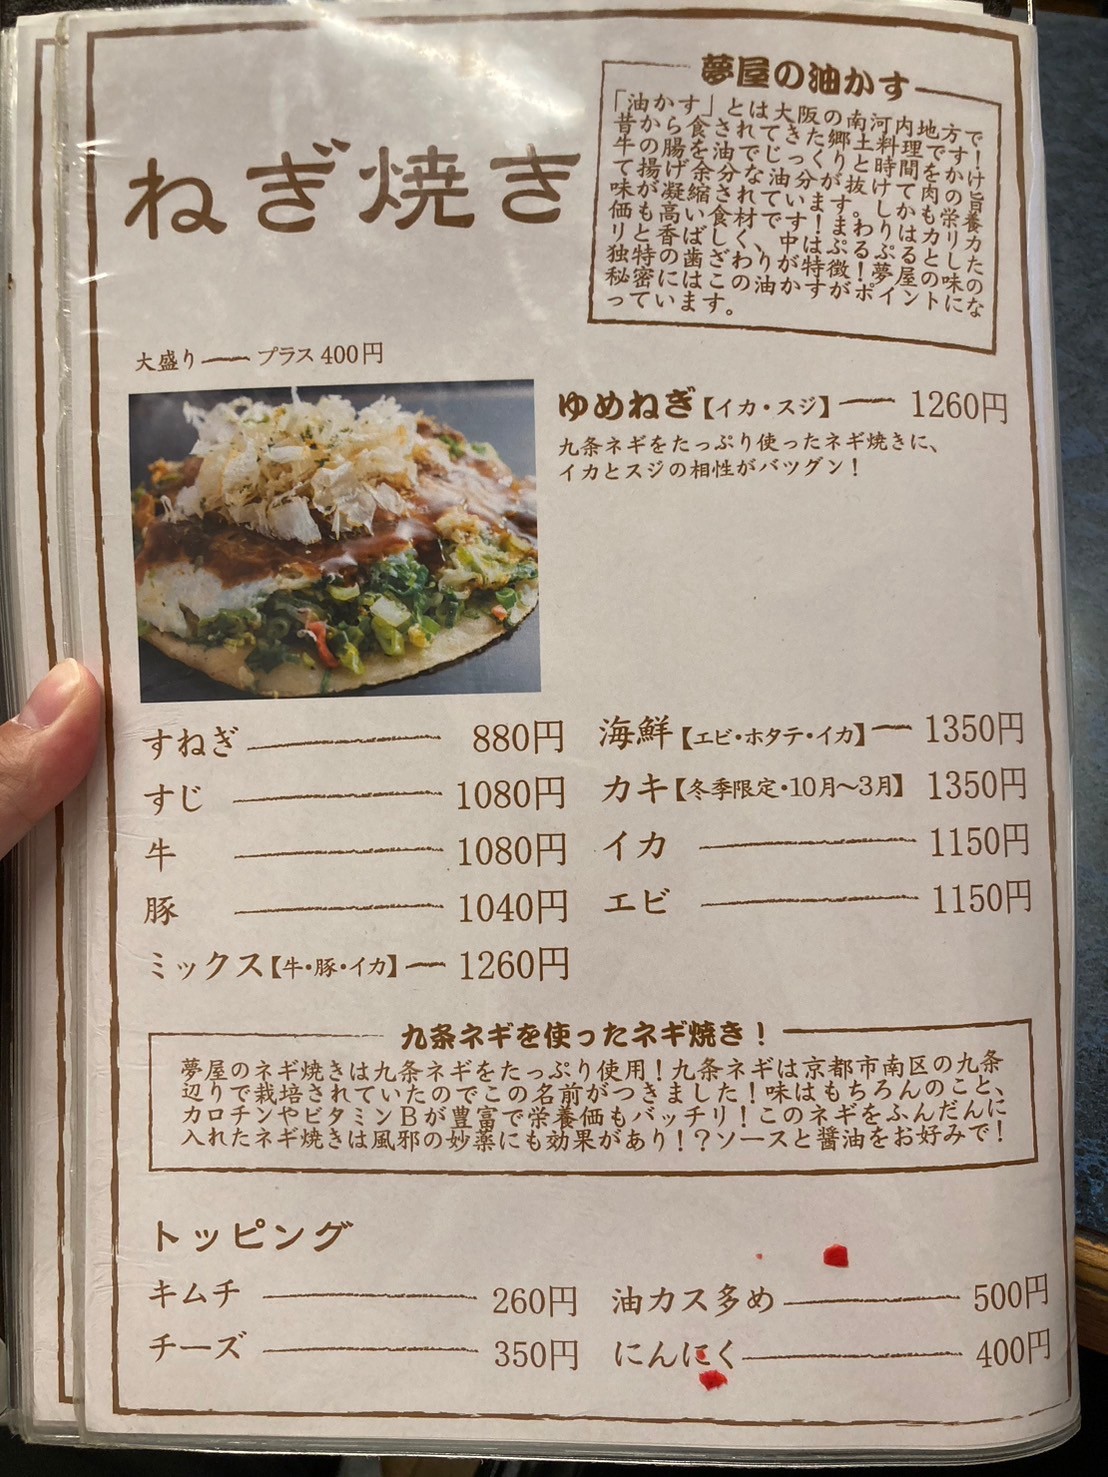 ねぎ焼き
夢屋の油かす
「油かす」とは大阪の南河内地方で
昔から食されてきた郷土料理です!
牛の腸を油でじっくりと時間をかけ
て揚げ余分な油分が抜け 肉の旨
味が凝縮された 栄養
価も高い まわりはカリカ
リと香ばしく、中はぷるぷるとした
独特の歯ざわりが特徴!夢屋の味の
秘密はこの油かすがポイントにな
っています。
大盛り プラス400円
ゆめねぎ【イカ・スジ】 1260円
九条ネギをたっぷり使ったネギ焼きに、
イカとスジの相性がバツグン!
すねぎ 880円
すじ 1080円
牛 1080円
豚 1040円
ミックス【牛・豚・イカ】 1260円
海鮮【エビ・ホタテ・イカ】 1350円
カキ【冬季限定・10月〜3月】 1350円
イカ 1150円
エビ 1150円
九条ネギを使ったネギ焼き!
夢屋のネギ焼きは九条ネギをたっぷり使用!九条ネギは京都市南区の九条
辺りで栽培されていたのでこの名前がつきました!味はもちろんのこと、
カロチンやビタミンBが豊富で栄養価もバッチリ!このネギをふんだんに
入れたネギ焼きは風邪の妙薬にも効果があり!?ソースと醤油をお好みで!
トッピング
キムチ 260円
チーズ 350円
油カス多め 500円
にんにく 400円